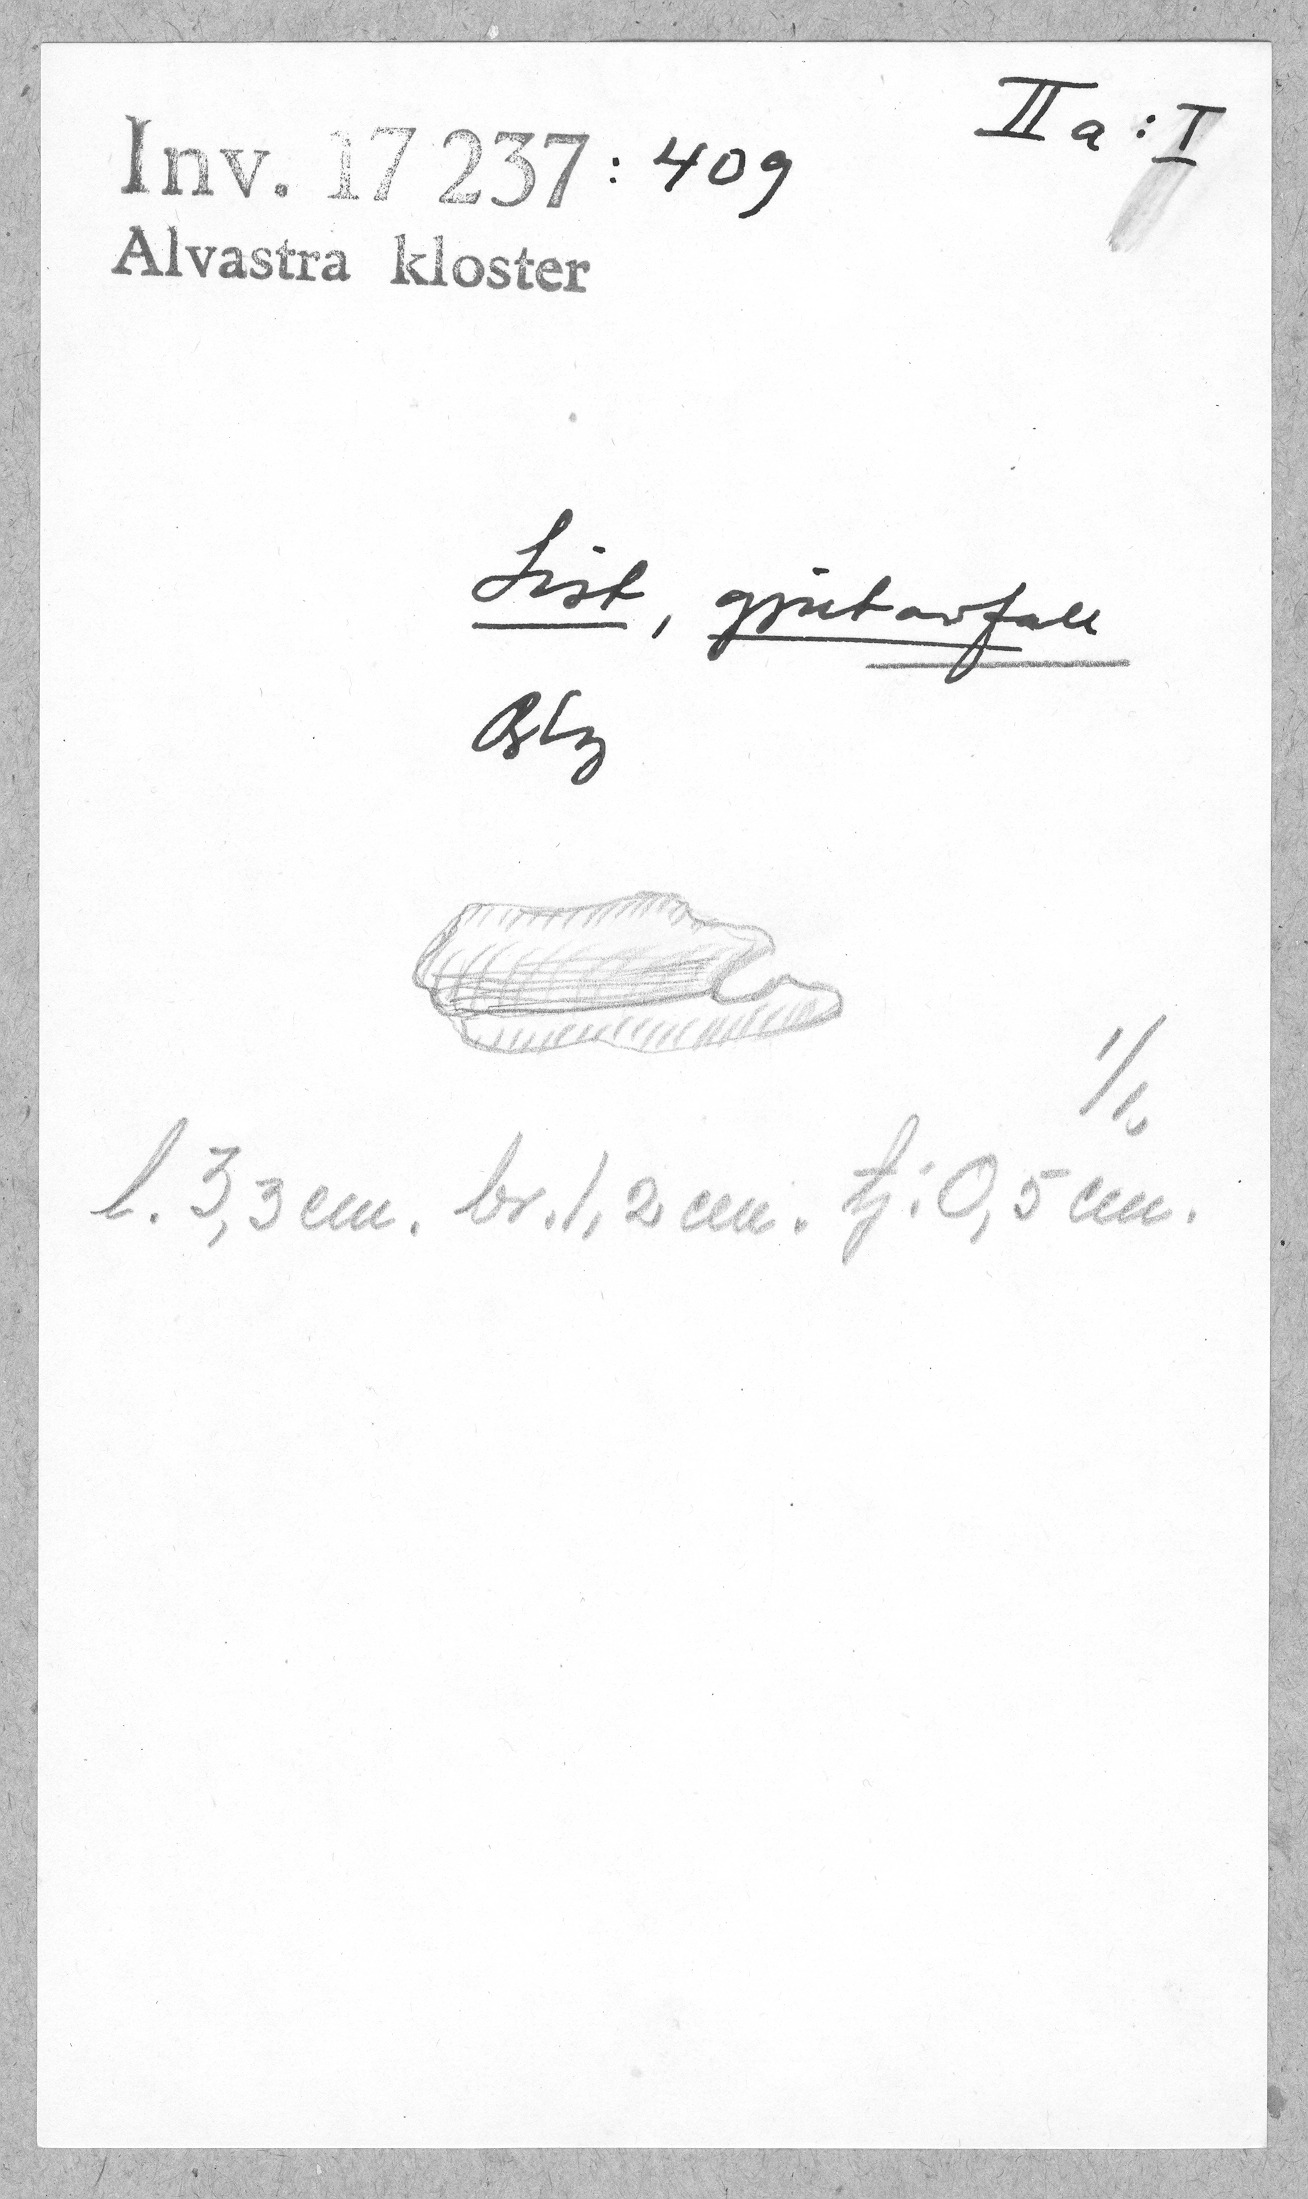 IIa:I
Inv. 17 237:409
Alvastra kloster
List, gjutavfall
Bly
1/1
l. 3,3 cm. br. 1,2 cm. tj: 0,5 cm.